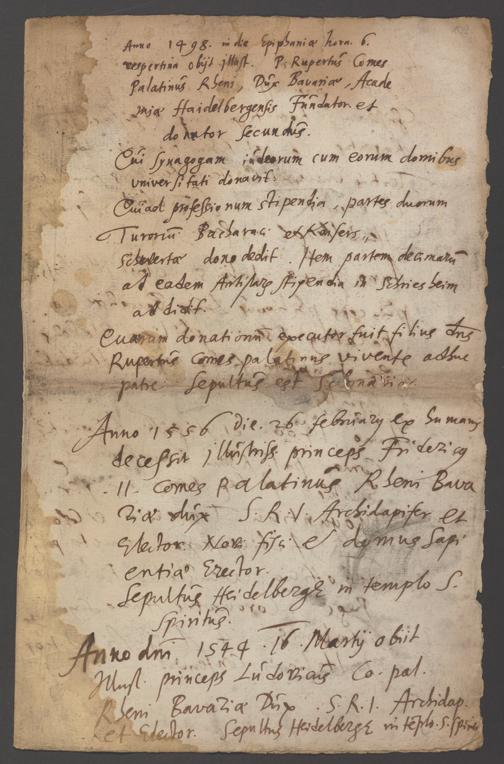 Anno 1498. in die Epiphaniæ hora. 6.
vespertina obijt illust. P. Rupertus Comes
Palatinus Rheni, Dux Bavariæ, Acade
miæ Haidelbergensis Fundator et
donator secundus.
Cui Synagogam iudeorum cum eorum domibus
universitati donavit.
Qui ad professionum stipendia, partes duorum
Turorum Bacharaci et Keisers,
dono dedit. Item partem decimarum
ad eadem stipendia in Schriesheim
addidit.
Quarum donationum executor fuit filius dns
Rupertus Comes palatinus vivente adhuc
patre. Sepultus est
Anno 1556 die. 26 februarij ex humanis
decessit illustriss princeps Fridericus
.II. Comes Palatinus Rheni Bava
riæ dux S. R. I. Archidapifer et
Elector. Novi fisci et domus Sapi
entiæ Erector.
Sepultus Heidelbergæ in templo S.
Spiritus.
Anno dni 1544. 16 Martij obiit
Illust. princeps Ludovicus Co. pal.
Rheni Bavariæ Dux. S. R. I. Archidap.
et Elector. Sepultus Heidelbergæ in templo. S. Spiritus